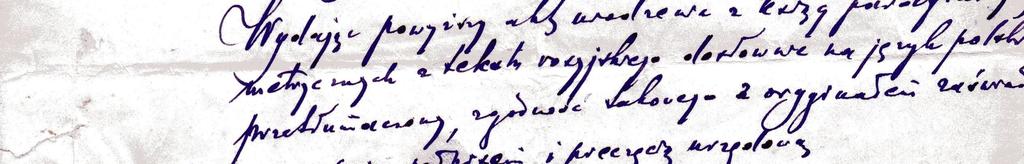 Wydając powyższy akt urodzenia z ksiąg
metrycznych z tekstu rosyjskiego dosłownie na język polski
przetłumaczony, zgodność takowego z oryginałem zaświad
i pieczęcią urzędową